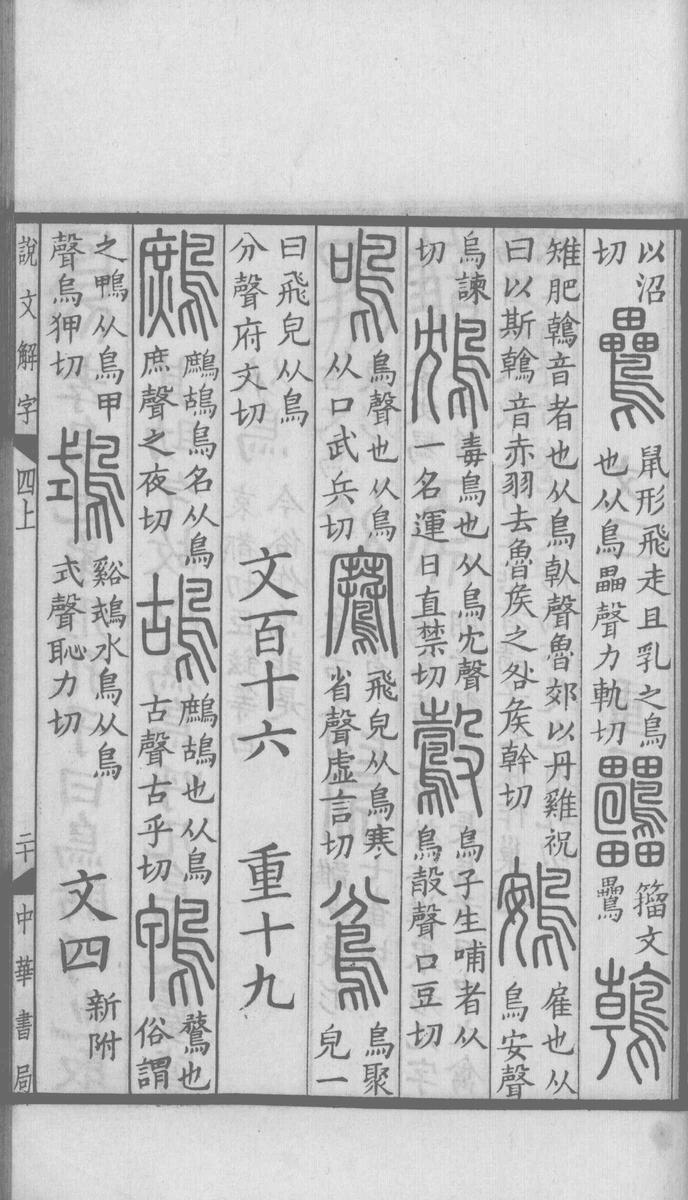 以沼切 鸓 鼠形飛走且乳之鳥也从鳥畾聲力軌切 𪈦 籒文鸓 鶾
雉肥鶾音者也从鳥倝聲魯郊以丹雞祝曰以斯鶾音赤羽去魯矦之咎矦幹切 鴳 雇也从鳥安聲
烏諫切 鴆 毒鳥也从鳥冘聲一名運日直禁切 鷇 鳥子生哺者从鳥㱿聲口豆切
鳴 鳥聲也从鳥从口武兵切 鶱 飛皃从鳥寒省聲虛言切 鳻 鳥聚皃一
曰飛皃从鳥分聲府文切 文百十六 重十九
鷓 鷓鴣鳥名从鳥庶聲之夜切 鴣 鷓鴣也从鳥古聲古乎切 鴨 鶩也俗謂
之鴨从鳥甲聲烏狎切 𪀦 谿𪀦水鳥从鳥式聲恥力切 文四 新附
說文解字 四上 二十 中華書局